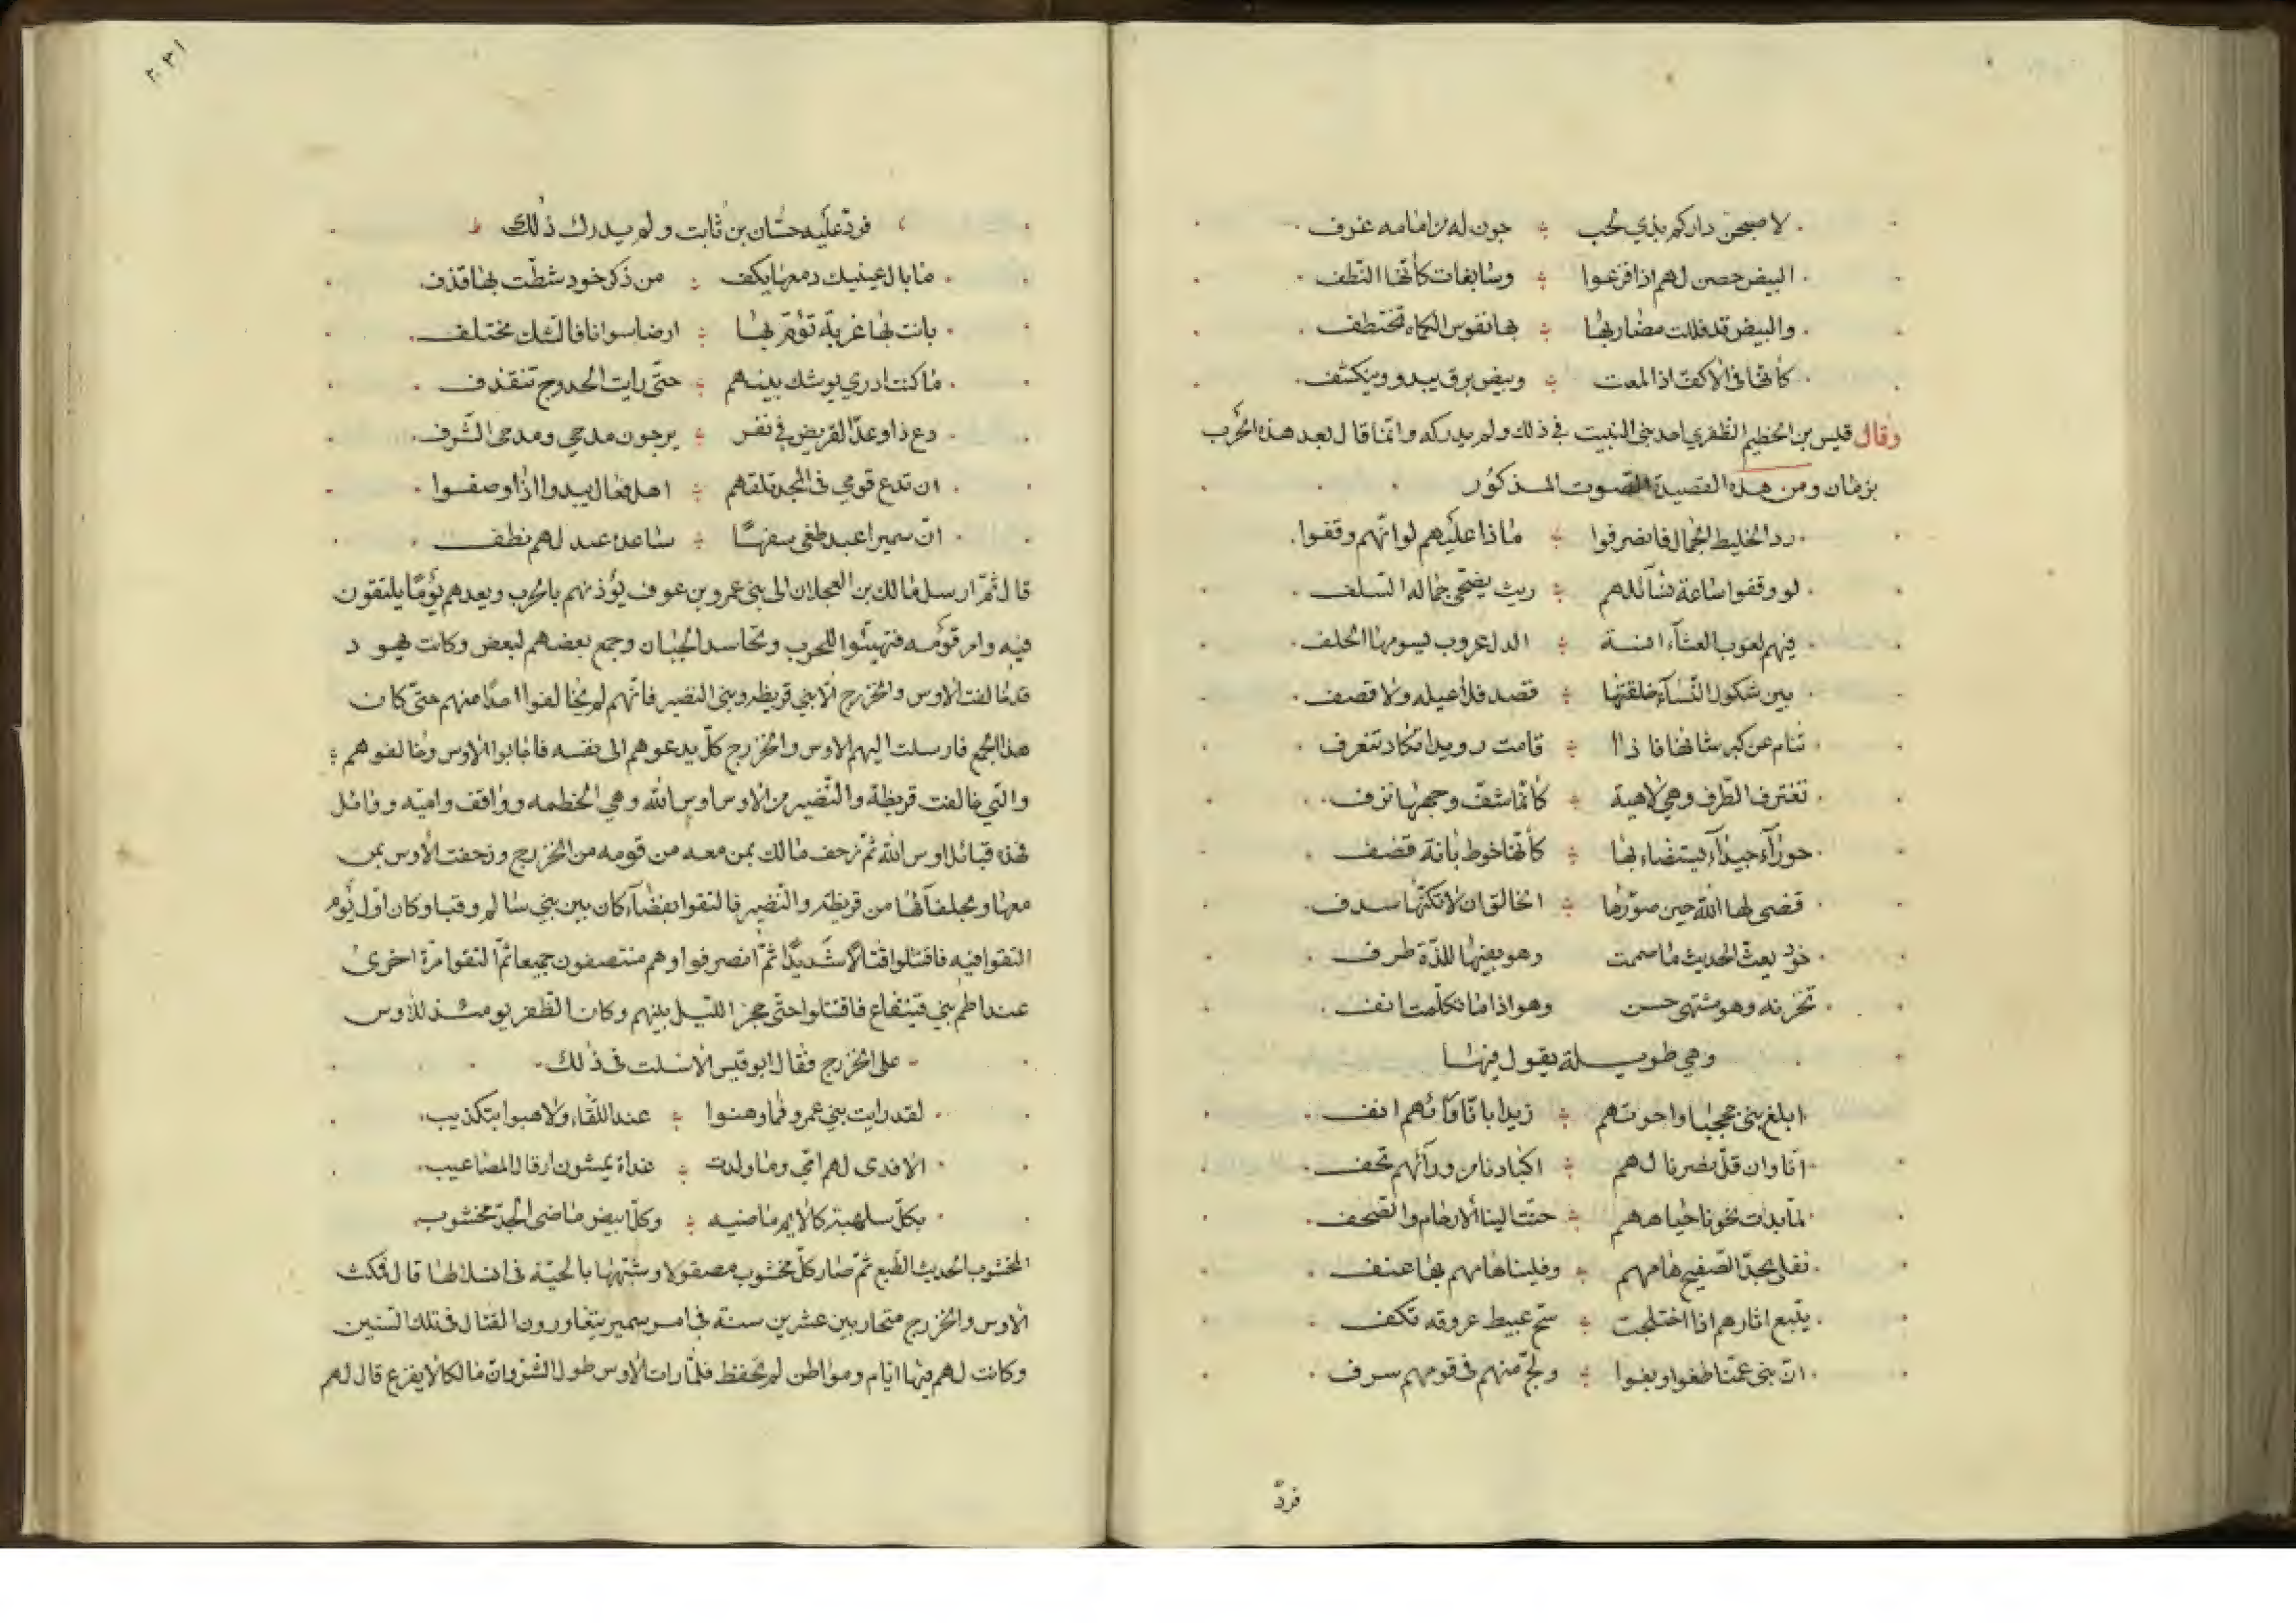 لاصبحن داركم بذي لجب ؞ جون له من امامه عزف
البيض حصن لهم اذا فزعوا ؞ وسابغات كأنها النطف
والبيض قد فللت مضاربها ؞ بها نفوس الكماه تختطف
كأنها في الاكف اذا لمعت ؞ وميض برق يبدو وينكشف
وقال قيس بن الخطيم الظفري احد بني النبيت في ذلك ولم يدركه وانما قال بعد هذه الحرب
بزمان ومن هذه القصيدة الصوت المذكور
رد الخليط الجمال فانصرفوا ؞ ماذا عليهم لو انهم وقفوا
لو وقفوا ساعة نسائلهم ؞ ريث يضحي جماله السلف
فيهم لعوب العشاء انسة ؞ الدل عروب يسومها الخلف
بين شكول النساء خلقتها ؞ قصد فلا عيله ولا قصف
تنام عن كبر شانها فاذا ا ؞ قامت رويدا تكاد تنغرف
تغترف الطرف وهي لاهية ؞ كأنما شف وجهها نزف
حوراء جيداء يستضاء بها ؞ كأنها خوط بانة قضف
قضى لها الله حين صورها ؞ الخالق ان لا تكنها سدف
خود يغث الحديث ما صمتت وهو بفيها للذة طرف
تخزنه وهو مشتهى حسن وهو اذا ما تكلمت انف
وهي طويلة يقول فيها
ابلغ بني جحجبا واخوتهم ؞ زيدا بانا ورائهم انف
انا وان قل نصرنا لهم ؞ اكبادنا من ورآئهم تجف
لما بدات نحونا جباههم ؞ حنت الينا الارحام والصحف
نفلي بحد الصفيح هامهم ؞ وفلينا هامهم بها عنف
يتبع اثارهم اذا اختلجت ؞ سح عبيط عروقه تكف
ان بني عمنا طغوا وبغوا ؞ ولج منهم في قومهم سرف
فرد
٢٠٣١
فرد عليه حسان بن ثابت ولم يدرك ذلك
ما بال عينيك دمعها يكف ؞ من ذكر خود شطت بها قذف
بانت بها غربة تؤم بها ؞ ارضا سوانا فالشكل مختلف
ما كنت ادري يوشك بينهم ؞ حتى رايت الحدوج تنقذف
دع ذا وعد القريض في نفر ؞ يرجون مدحي ومدحي الشرف
ان تدع قومي في المجد تلقهم ؞ اهل فعال يبدوا اذا وصفوا
ان سميرا عبد طغى سفها ؞ ساعده عبد لهم نطف
قال ثم ارسل مالك بن العجلان الى بني عمرو بن عوف يؤذنهم بالحرب ويعدهم يوما يلتقون
فيه وامر قومه فتهيئوا للحرب وتحاسد الجبان وجمع بعضهم لبعض وكانت يهود
قد حالفت الاوس والخزرج الا بني قريظه وبني النضير فانهم لم يخالفوا احدا منهم حتى كان
هذا الجمع فارسلت اليهم الاوس والخزرج كل يدعوهم الى نفسه فاجابوا الاوس وخالفوهم ؞
والتي خالفت قريظة والنضير من الاوس اوس الله وهي الخطمه وواقف واميه ووائل
فهذه قبائل اوس الله ثم زحف مالك بمن معه من قومه من الخزرج وزحفت الاوس بمن
معها وبحلفآئها من قريظة والنضير فالتقوا بفضاء كان بين بني سالم وقبا وكان اول يوم
التقوا فيه فاقتتلوا قتالا شديدا ثم انصرفوا وهم منتصفون جميعا ثم التقوا مرة اخرى
عند اطم بني قينقاع فاقتتلوا حتى حجز الليل بينهم وكان الظفر يومئذ للاوس
على الخزرج فقال ابو قيس الاسلت في ذلك
لقد رايت بني عمرو فما وهنوا ؞ عند اللقاء ولا هبوا بتكذيب
الا فدى لهم امي وما ولدت ؞ غداة يمشون ارقال المصاعيب
بكل سلهبة كالايم ماضيه ؞ وكل ابيض ماضي الحد مخشوب
المخشوب الحديث الطبع ثم صار كل مخشوب مصقولا وشبهها بالحية في انسلاطها قال فمكث
الاوس والخزرج متحاربين عشرين سنة في امر سمير يتغاورون القتال في تلك السنين
وكانت لهم فيها ايام ومواطن لم تحفظ فلما رات الاوس طول الشر وان مالكا لا يفزع قال لهم